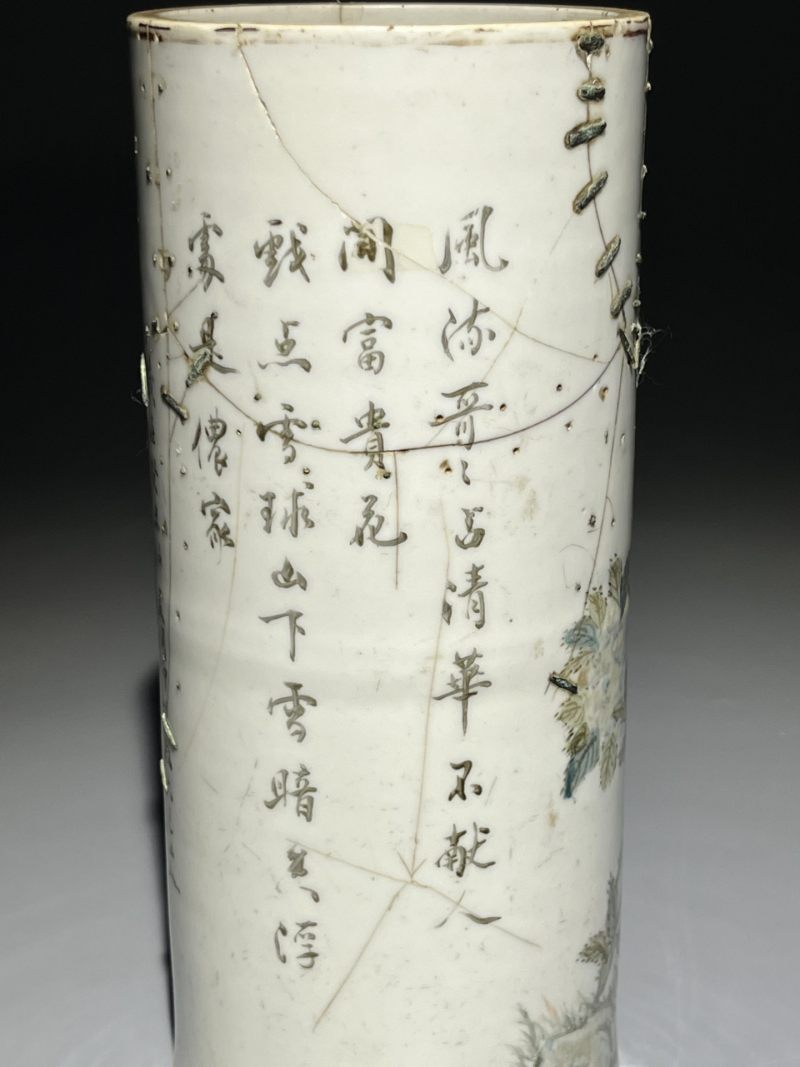 風流哥〻占清華不献人
間富貴花
戲点雪球山下雪暗香浮
處是儂家